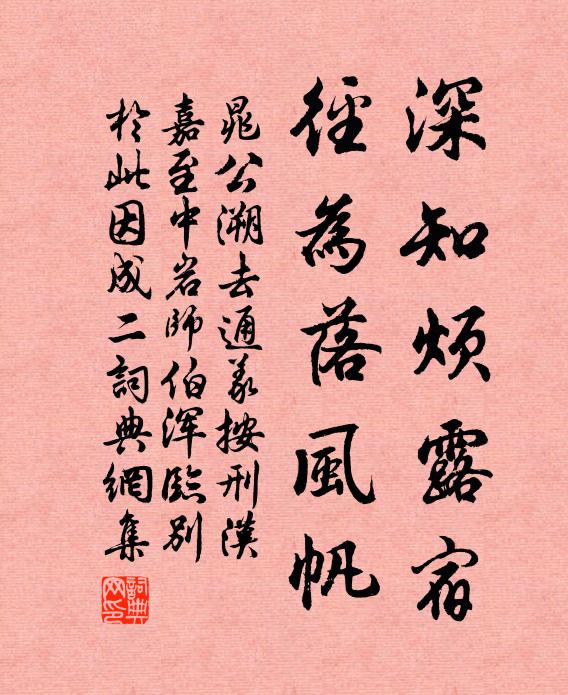 深知煩露宿
徑為落風帆
晁公溯去通義按刑漢
嘉至中岩師伯渾臨別
於此因成二詞典網集